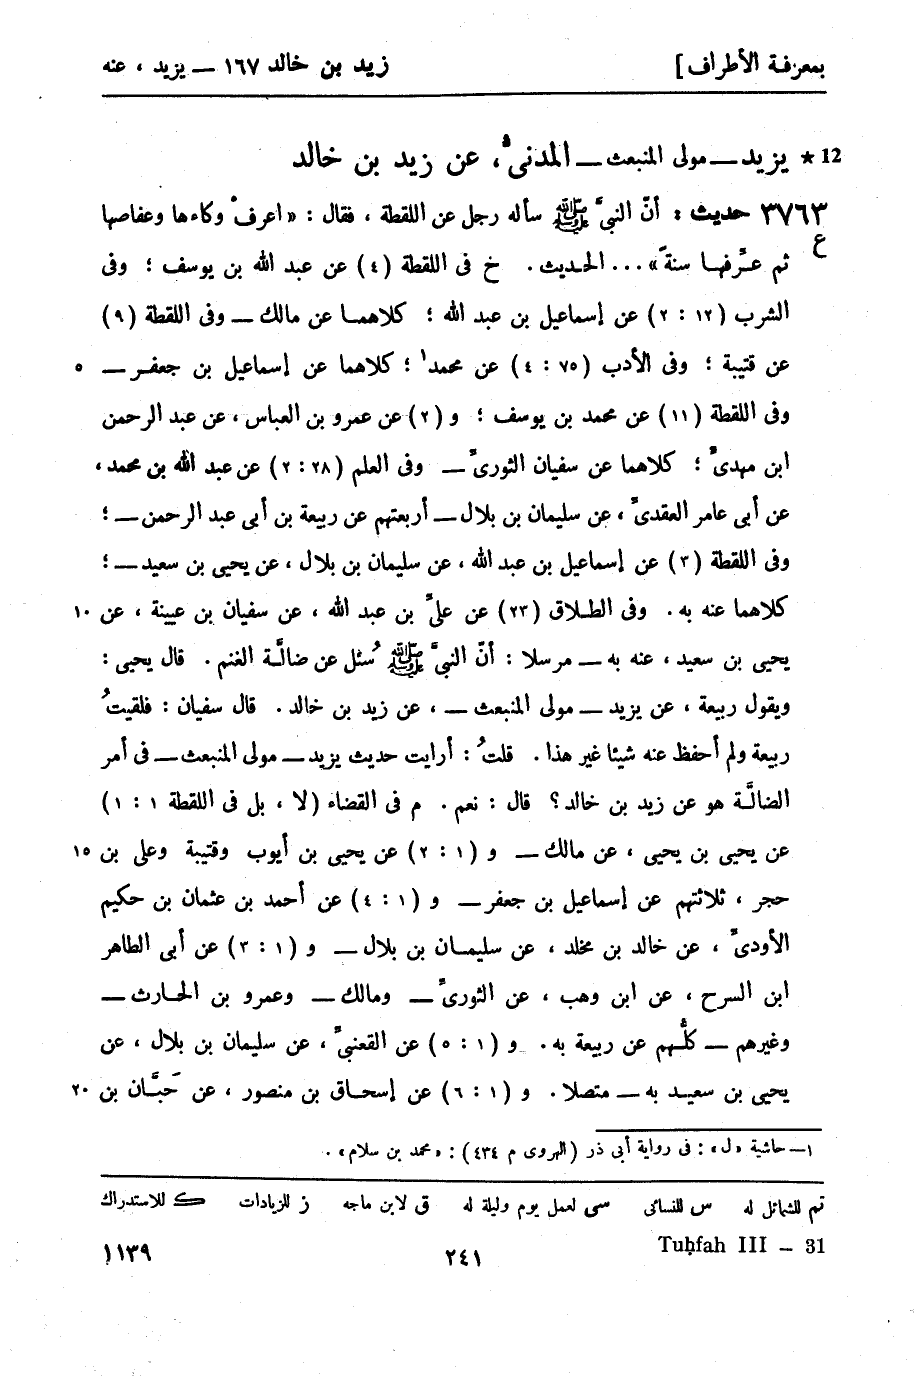 بمعرفة الأطراف] زيد بن خالد ١٦٧ — يزيد ، عنه
12 ★ يزيد — مولى المنبعث — المدنىّ، عن زيد بن خالد
٣٧٦٣ حديث : أنّ النبىّ ﷺ سأله رجل عن اللقطة ، فقال : « اعرفْ وكاءها وعفاصها
ع ثم عرِّفها سنةً» ... الحديث . خ فى اللقطة (٤) عن عبد الله بن يوسف ؛ وفى
الشرب (١٢ : ٢) عن إسماعيل بن عبد الله ؛ كلاهما عن مالك — وفى اللقطة (٩)
عن قتيبة ؛ وفى الأدب (٧٥ : ٤) عن محمد١ ؛ كلاهما عن إسماعيل بن جعفر — ٥
وفى اللقطة (١١) عن محمد بن يوسف ؛ و (٢) عن عمرو بن العباس ، عن عبد الرحمن
ابن مهدىّ ؛ كلاهما عن سفيان الثورىّ — وفى العلم (٢٨ : ٢) عن عبد الله بن محمد ،
عن أبى عامر العقدىّ ، عن سليمان بن بلال — أربعتهم عن ربيعة بن أبى عبد الرحمن — ؛
وفى اللقطة (٣) عن إسماعيل بن عبد الله ، عن سليمان بن بلال ، عن يحيى بن سعيد — ؛
كلاهما عنه به . وفى الطلاق (٢٣) عن علىّ بن عبد الله ، عن سفيان بن عيينة ، عن ١٠
يحيى بن سعيد ، عنه به — مرسلا : أنّ النبىّ ﷺ سُئل عن ضالَّة الغنم . قال يحيى :
ويقول ربيعة ، عن يزيد — مولى المنبعث — ، عن زيد بن خالد . قال سفيان : فلقيتُ
ربيعة ولم أحفظ عنه شيئا غير هذا . قلتُ : أرايت حديث يزيد — مولى المنبعث — فى أمر
الضالَّة هو عن زيد بن خالد؟ قال : نعم . م فى القضاء (لا ، بل فى اللقطة ١ : ١)
عن يحيى بن يحيى ، عن مالك — و (١ : ٢) عن يحيى بن أيوب وقتيبة وعلى بن ١٥
حجر ، ثلاثتهم عن إسماعيل بن جعفر — و (١ : ٤) عن أحمد بن عثمان بن حكيم
الأودىّ ، عن خالد بن مخلد ، عن سليمان بن بلال — و (١ : ٣) عن أبى الطاهر
ابن السرح ، عن ابن وهب ، عن الثورىّ — ومالك — وعمرو بن الحارث —
وغيرهم — كلُّهم عن ربيعة به . و (١ : ٥) عن القعنبىّ ، عن سليمان بن بلال ، عن
يحيى بن سعيد به — متصلا . و (١ : ٦) عن إسحاق بن منصور ، عن حَبَّان بن ٢٠
١— حاشية «ل» : فى رواية أبى ذر (الهروى م ٤٣٤) : «محمد بن سلام» .
تم للشمائل له س للنسائى سى لعمل يوم وليلة له ق لابن ماجه ز للزيادات ك للاستدراك
Tuḥfah III – 31 ٢٤١ ١١٣٩